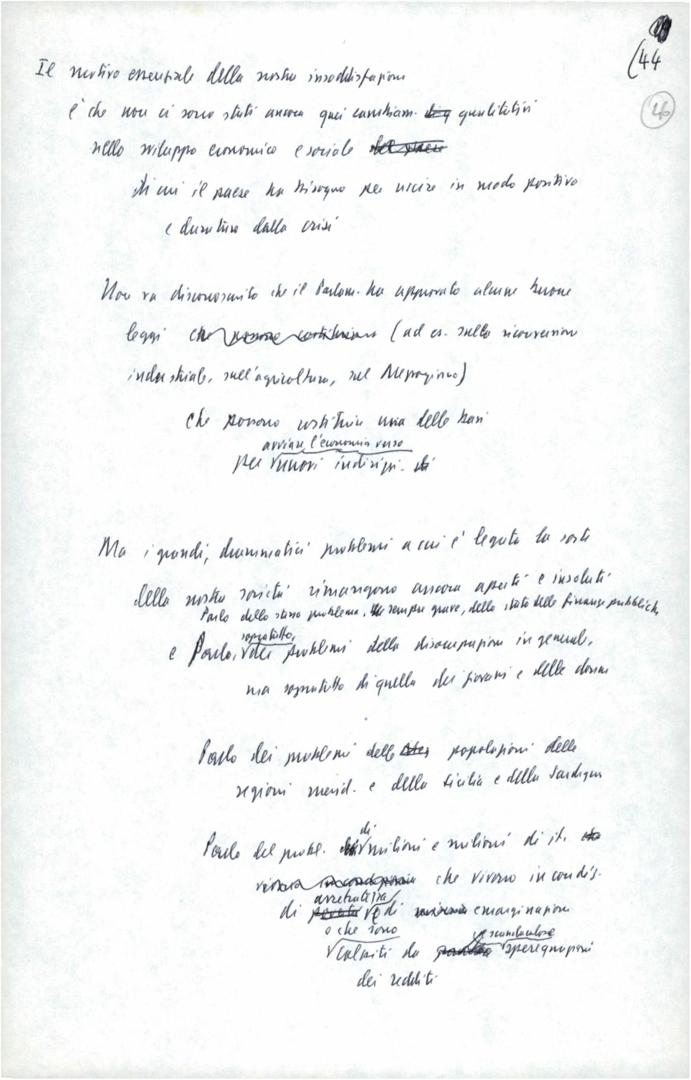 (44
46
Il motivo essenziale della nostra insoddisfazione
è che non ci sono stati ancora quei cambiam. qualitativi
nello sviluppo economico e sociale del paese
di cui il paese ha bisogno per uscire in modo positivo
e duraturo dalla crisi
Non va disconosciuto che il Parlam. ha approvato alcune buone
leggi che possono costituire (ad es. sulla riconversione
industriale, sull'agricoltura, sul Mezzogiorno)
che possono costituire una delle basi
avviare l'economia verso
per nuovi indirizzi. di
Ma i grandi, drammatici problemi a cui è legata la sorte
della nostra società rimangono ancora aperti e insoluti
Parlo dello stesso problema, sempre grave, dello stato delle finanze pubbliche,
sopratutto,
e Parlo, dei problemi della disoccupazione in generale,
ma sopratutto di quella dei giovani e delle donne
Parlo dei problemi delle popolazioni delle
regioni merid. e della Sicilia e della Sardegna
di
Parlo del probl. milioni e milioni di it.
vivono in condizioni che vivono in condiz.
arretratezza
di povertà e di emarginazione
o che sono
scandalose
colpiti da sperequazioni
dei redditi